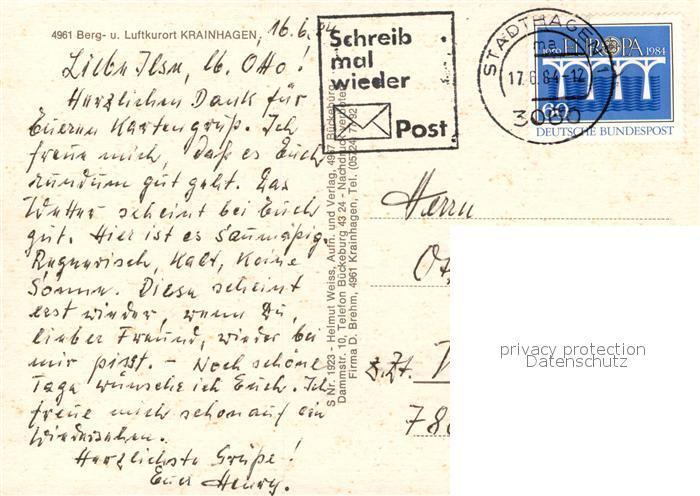 4961 Berg- u. Luftkurort KRAINHAGEN, 16.6.84
Liebe Ilse, lb. Otto!
Herzlichen Dank für
Eueren Kartengruß. Ich
freue mich, daß es Euch
rundum gut geht. Das
Wetter scheint bei Euch
gut. Hier ist es saumäßig.
Regnerisch, kalt, keine
Sonne. Diese scheint
erst wieder, wenn Du,
lieber Freund, wieder bei
mir pisst. – Noch schöne
Tage wünsche ich Euch. Ich
freue mich schon auf ein
Wiedersehen.
Herzlichste Grüße!
Euer Henry.
S Nr. 1923 - Helmut Weiss, Aufn. und Verlag, 4967 Bückeburg
Dammstr. 10, Telefon Bückeburg 43 24 - Nachdruck verboten
Firma D. Brehm, 4961 Krainhagen, Tel. (05724)
Schreib
mal
wieder
Post
STADTHAGEN 1
ma
17.6.84-12
3060
1959 EUROPA 1984
60
DEUTSCHE BUNDESPOST
Herrn
z.Zt.
privacy protection
Datenschutz